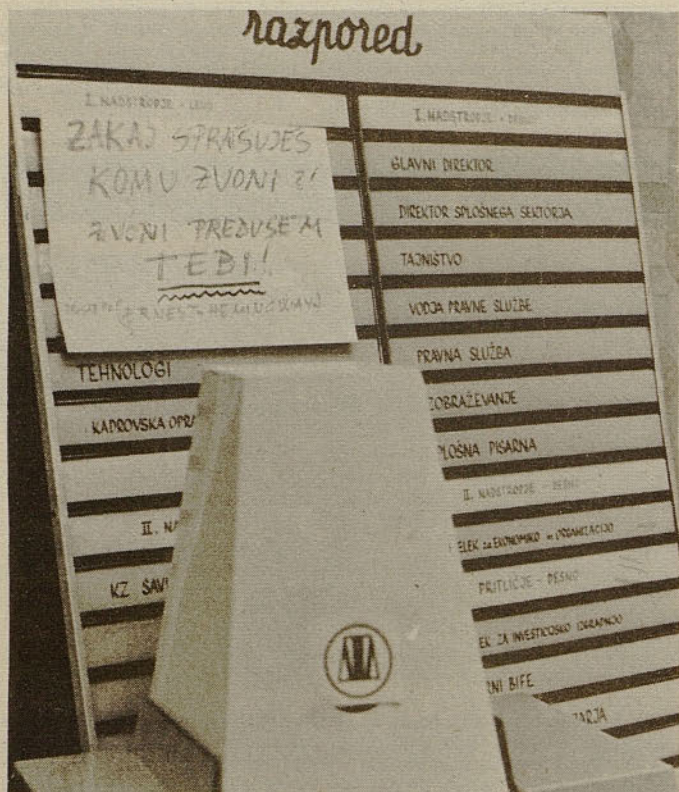 razpored
I. NADSTROPJE - LEVO
ZAKAJ SPRAŠUJEŠ
KOMU ZVONI ?!
ZVONI PREDVSEM
TEBI!
ERNEST HEMINGWAY
TEHNOLOGI
KADROVSKA OPRA
II. NA
KZ ŠAV
I. NADSTROPJE - DESNO
GLAVNI DIREKTOR
DIREKTOR SPLOŠNEGA SEKTORJA
TAJNIŠTVO
VODJA PRAVNE SLUŽBE
PRAVNA SLUŽBA
ZOBRAŽEVANJE
PLOŠNA PISARNA
II. NADSTROPJE - DESNO
ELEK za EKONOMIKO in ORGANIZACIJO
PRITLIČJE - DESNO
EK ZA INVESTICIJSKO IZGRADNJO
RNI BIFE
ARJA